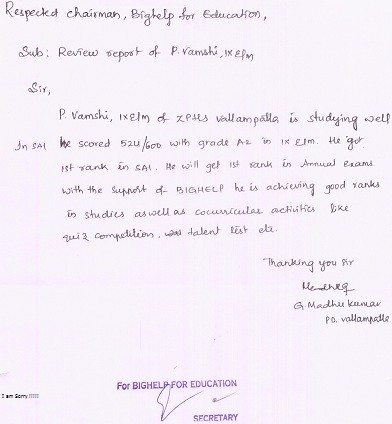 Respected chairman, Bighelp for Education,
Sub: Review report of P. Vamshi, IX E/m
Sir,
P. Vamshi, IX E/m of ZPHS Vallampatla is studying well
In SA1 he scored 524/600 with grade A2 in IX E/m. He got
1st rank in SA1. He will get 1st rank in Annual exams.
With the support of BIGHELP he is achieving good ranks
in studies aswell as cocurricular activities like
quiz competition, talent test etc.
Thanking you sir
G. Madhu kumar
PO. Vallampatla
For BIGHELP FOR EDUCATION
I am Sorry !!!!!
SECRETARY